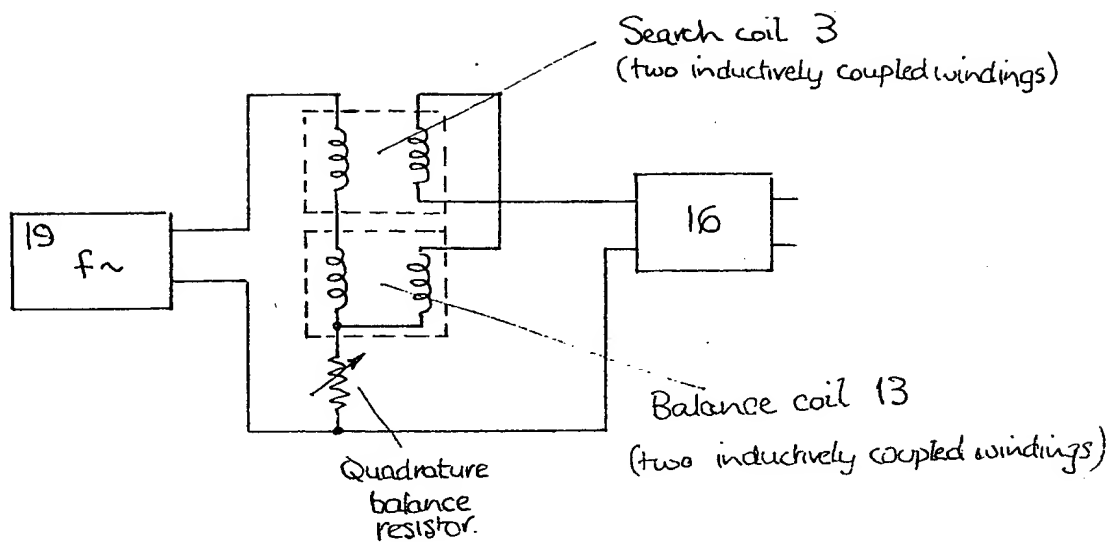 Search coil 3
(two inductively coupled windings)
19
f~
16
Balance coil 13
(two inductively coupled windings)
Quadrature
balance
resistor.